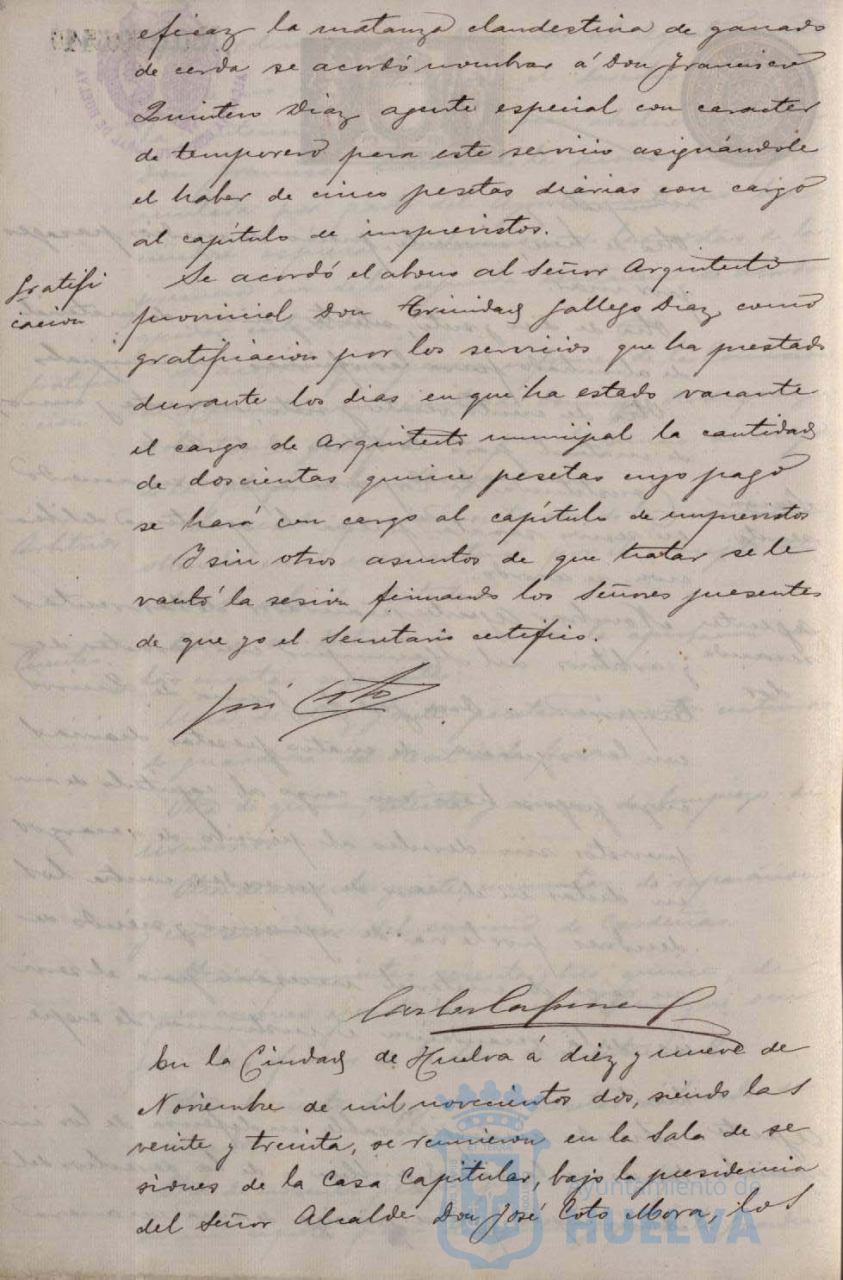 eficaz la matanza clandestina de ganado
de cerda se acordó nombrar á Don Francisco
Quintero Diaz agente especial con caracter
de temporero para este servicio asignándole
el haber de cinco pesetas diarias con cargo
al capítulo de imprevistos.
Gratifi
cacion
Se acordó el abono al Señor Arquitecto
provincial Don Trinidad Gallego Diaz, como
gratificacion por los servicios que ha prestado
durante los dias en que ha estado vacante
el cargo de Arquitecto municipal la cantidad
de doscientas quince pesetas cuyo pago
se hará con cargo al capítulo de imprevistos
Y sin otros asuntos de que tratar se le
vantó la sesion firmando los Señores presentes
de que yo el Secretario certifico.
José Coto
En la Ciudad de Huelva á diez y nueve de
Noviembre de mil novecientos dos, siendo las
veinte y treinta, se reunieron en la Sala de se
siones de la Casa Capitular, bajo la presidencia
del Señor Alcalde Don José Coto Mora, los
Ayuntamiento de
HUELVA